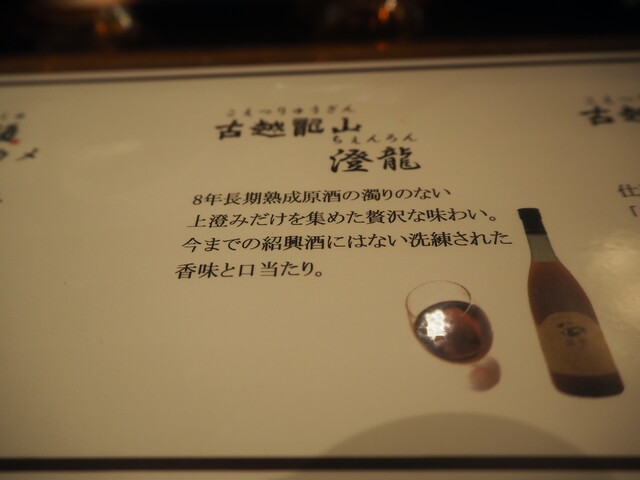 こえつりゅうざん
古越龍山
ちぇんろん
澄龍
8年長期熟成原酒の濁りのない
上澄みだけを集めた贅沢な味わい。
今までの紹興酒にはない洗練された
香味と口当たり。